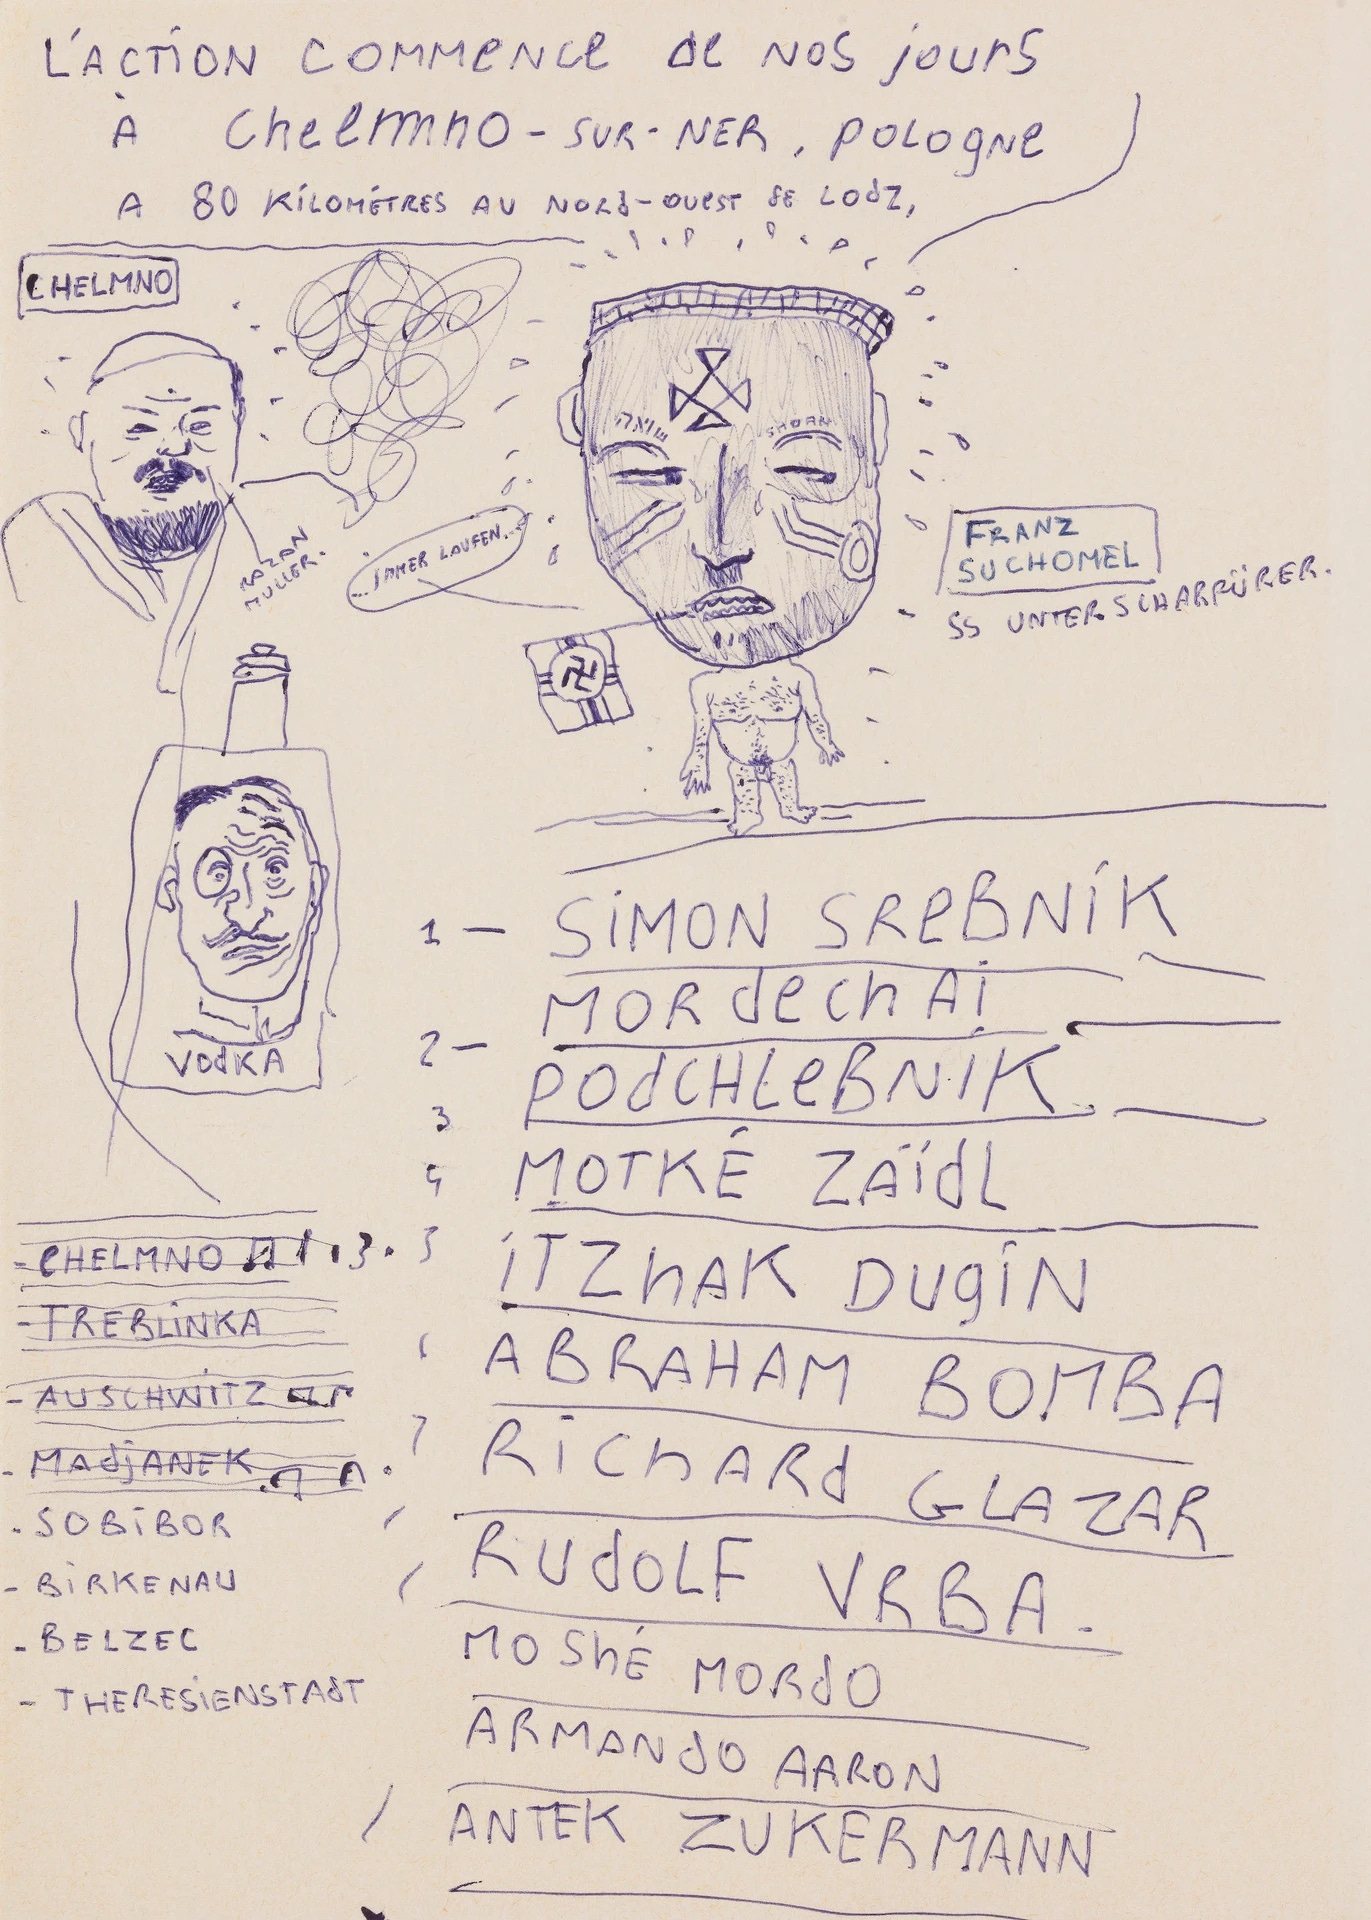 L'ACTION COMMENCE DE NOS JOURS
À CHELMNO-SUR-NER, POLOGNE
A 80 KILOMÉTRES AU NORD-OUEST DE LODZ,
CHELMNO
שואה
SHOAH
FRANZ
SUCHOMEL
SS UNTERSCHARFÜRER.
IMMER LAUFEN...
MULLER.
VODKA
1 - SIMON SREBNIK
MORDECHAI
2 - PODCHLEBNIK.
3
4 MOTKÉ ZAÏDL
5 ITZHAK DUGIN
ABRAHAM BOMBA
7 RICHARD GLAZAR
RUDOLF VRBA.
MOSHÉ MORDO
ARMANDO AARON
ANTEK ZUKERMANN
- CHELMNO
- TREBLINKA
- AUSCHWITZ
- MADJANEK
. SOBIBOR
- BIRKENAU
- BELZEC
- THERESIENSTADT